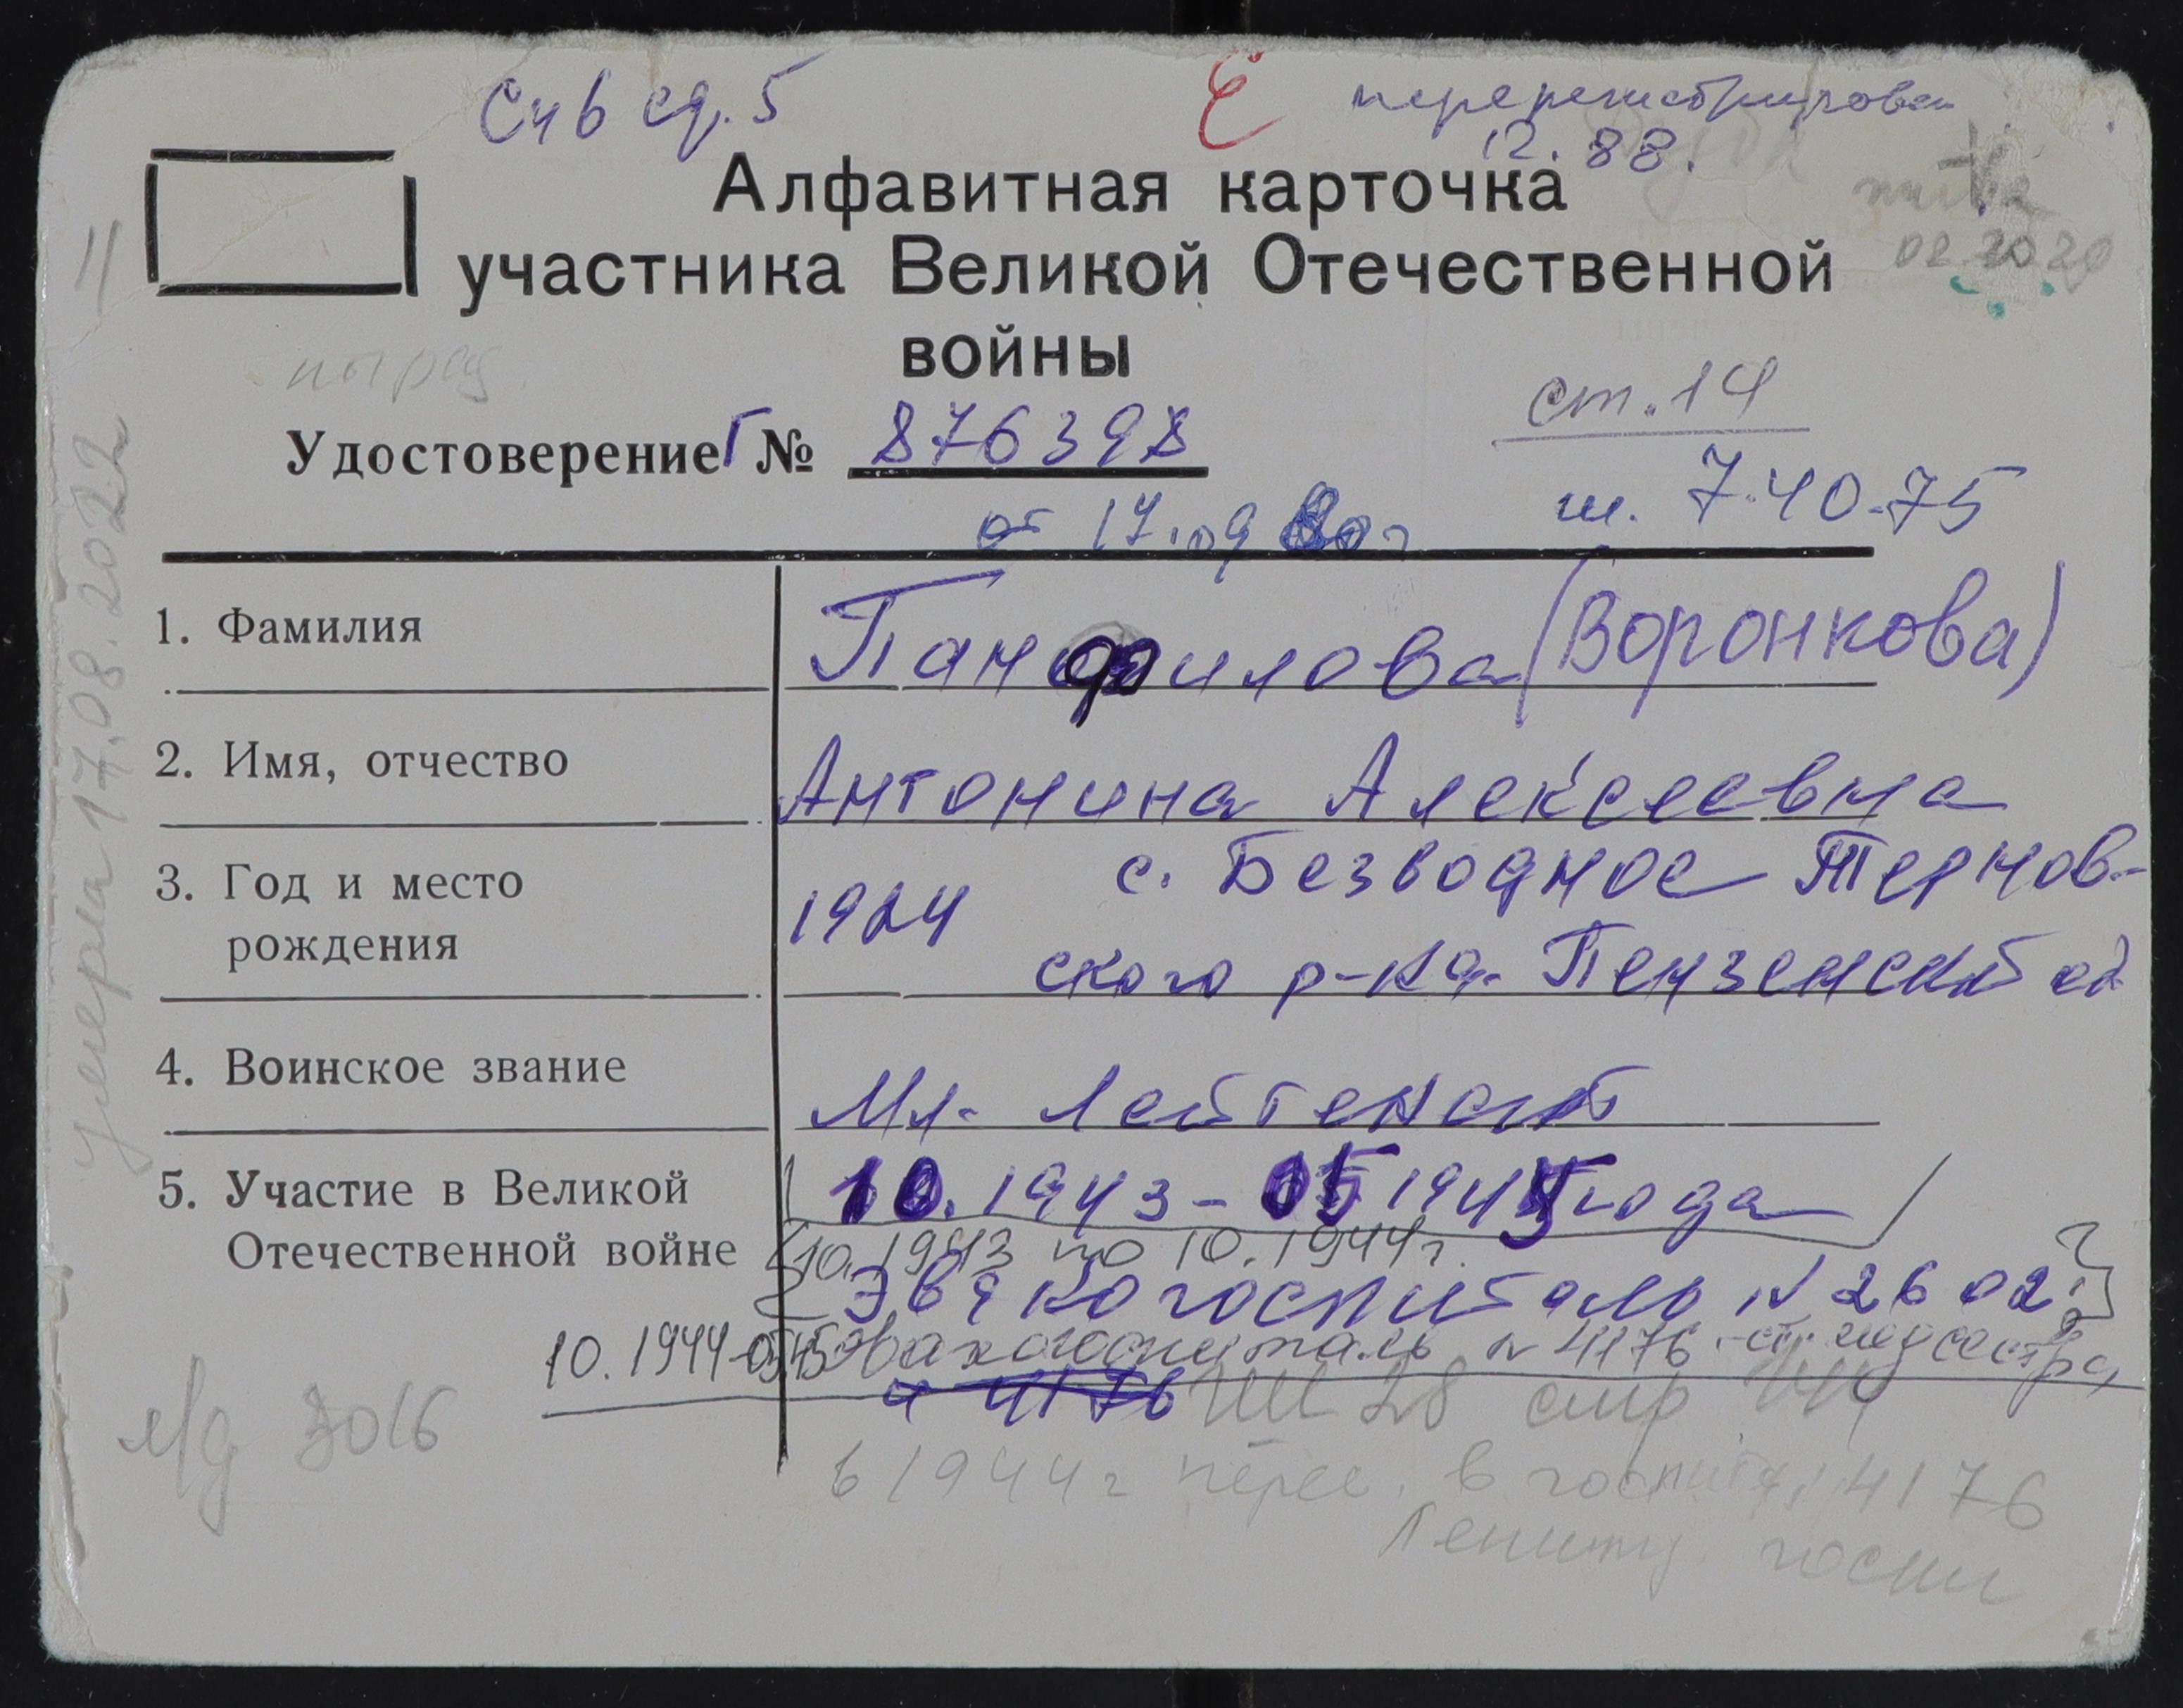 Счв ед. 5
Ё перерегистрирован
12. 88.
Алфавитная карточка
участника Великой Отечественной
войны
жива
02.2020
ст. 14
Удостоверение Г № 876398
от 17.09 80 г
ш. 7.40-75
1. Фамилия Панфилова (Воронкова)
2. Имя, отчество Антонина Алексеевна
3. Год и место рождения 1924 с. Безводное Тернов-
ского р-на. Пензенской об
4. Воинское звание Мл. Лейтенант
5. Участие в Великой 10.1943-05 1945 года
Отечественной войне 10.1943 по 10.1944 г.
Эвакогоспиталь № 2602
10.1944-05.45 Эвакогоспиталь № 4176 - ст. медсестра
ч 4176 ГШ 28 стр 144
в 1944 г перее. в госпиталь 4176
Ленинг. госпит
м/д 3016
умерла 17.08.2022